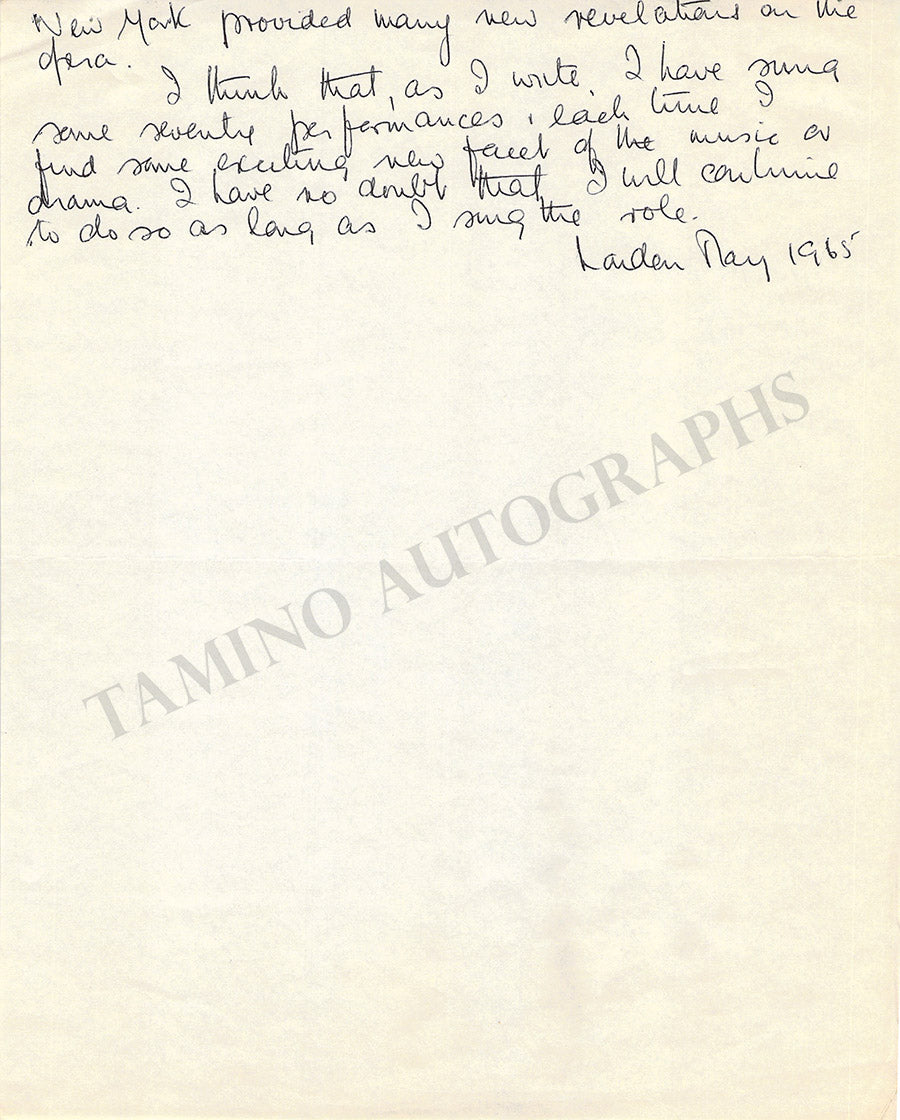 New York provided many new revelations on the
opera.
I think that, as I write, I have sung
some seventy performances & each time I
find some exciting new facet of the music or
drama. I have no doubt that I will continue
to do so as long as I sing the role.
London May 1965
TAMINO AUTOGRAPHS